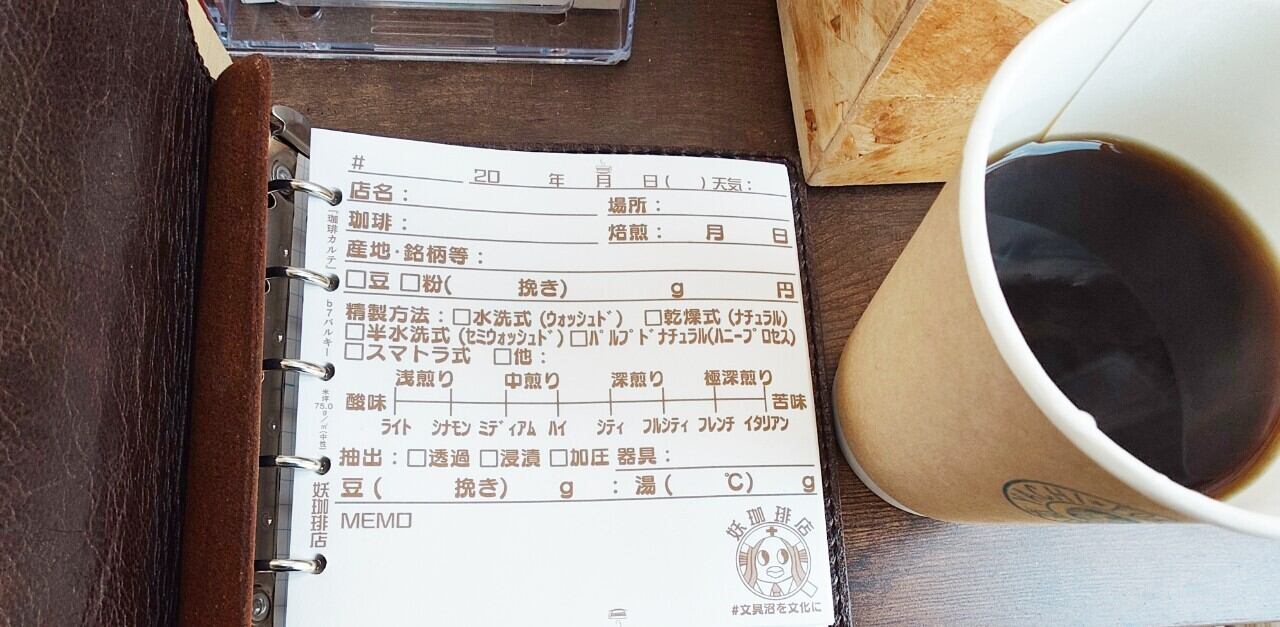 # 20 年 月 日( )天気:
店名: 場所:
珈琲: 焙煎: 月 日
産地・銘柄等:
□豆 □粉( 挽き) g 円
精製方法:□水洗式(ウォッシュド) □乾燥式(ナチュラル)
□半水洗式(セミウォッシュド)□パルプドナチュラル(ハニープロセス)
□スマトラ式 □他:
浅煎り 中煎り 深煎り 極深煎り
酸味 苦味
ライト シナモン ミディアム ハイ シティ フルシティ フレンチ イタリアン
抽出:□透過 □浸漬 □加圧 器具:
豆( 挽き) g : 湯( ℃) g
MEMO
妖珈琲店
#文具沼を文化に
「珈琲カルテ」 b7バルキー 米坪75.0g/㎡(中性) 妖珈琲店